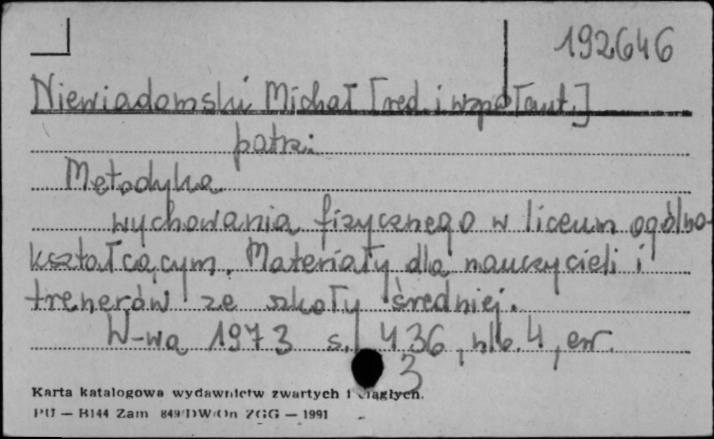 192646
Niewiadomski Michał [red. i współaut.]
patrz:
Metodyka
wychowania fizycznego w liceum ogólno-
kształcącym. Materiały dla nauczycieli i
trenerów ze szkoły średniej.
W-wa 1973 s. 436, nlb. 4, err.
3
Karta katalogowa wydawnictw zwartych i ciągłych.
PU — H144 Zam 849/DW/On ZGG — 1991